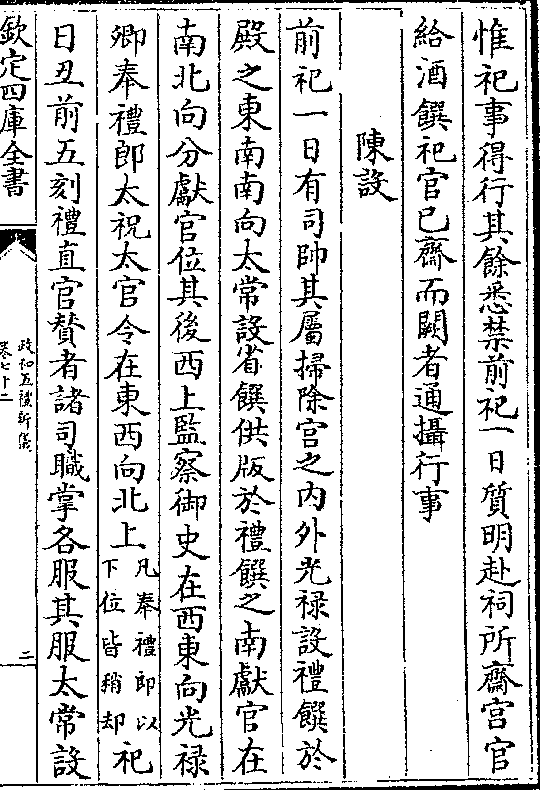 惟祀事得行其餘悉禁前祀一日質明赴祠所齋宫官
給酒饌祀官已齋而闕者通攝行事
陳設
前祀一日有司帥其屬掃除宫之内外光禄設禮饌於
殿之東南南向太常設省饌供版於禮饌之南獻官在
南北向分獻官位其後西上監察御史在西東向光禄
卿奉禮郎太祝太官令在東西向北上凡奉禮郎以下位皆稍却祀
日丑前五刻禮直官賛者諸司職掌各服其服太常設
欽定四庫全書
政和五禮新儀
卷七十二
二